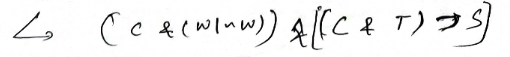 ↳ (C & (W|nW)) & [(C & T) → S]